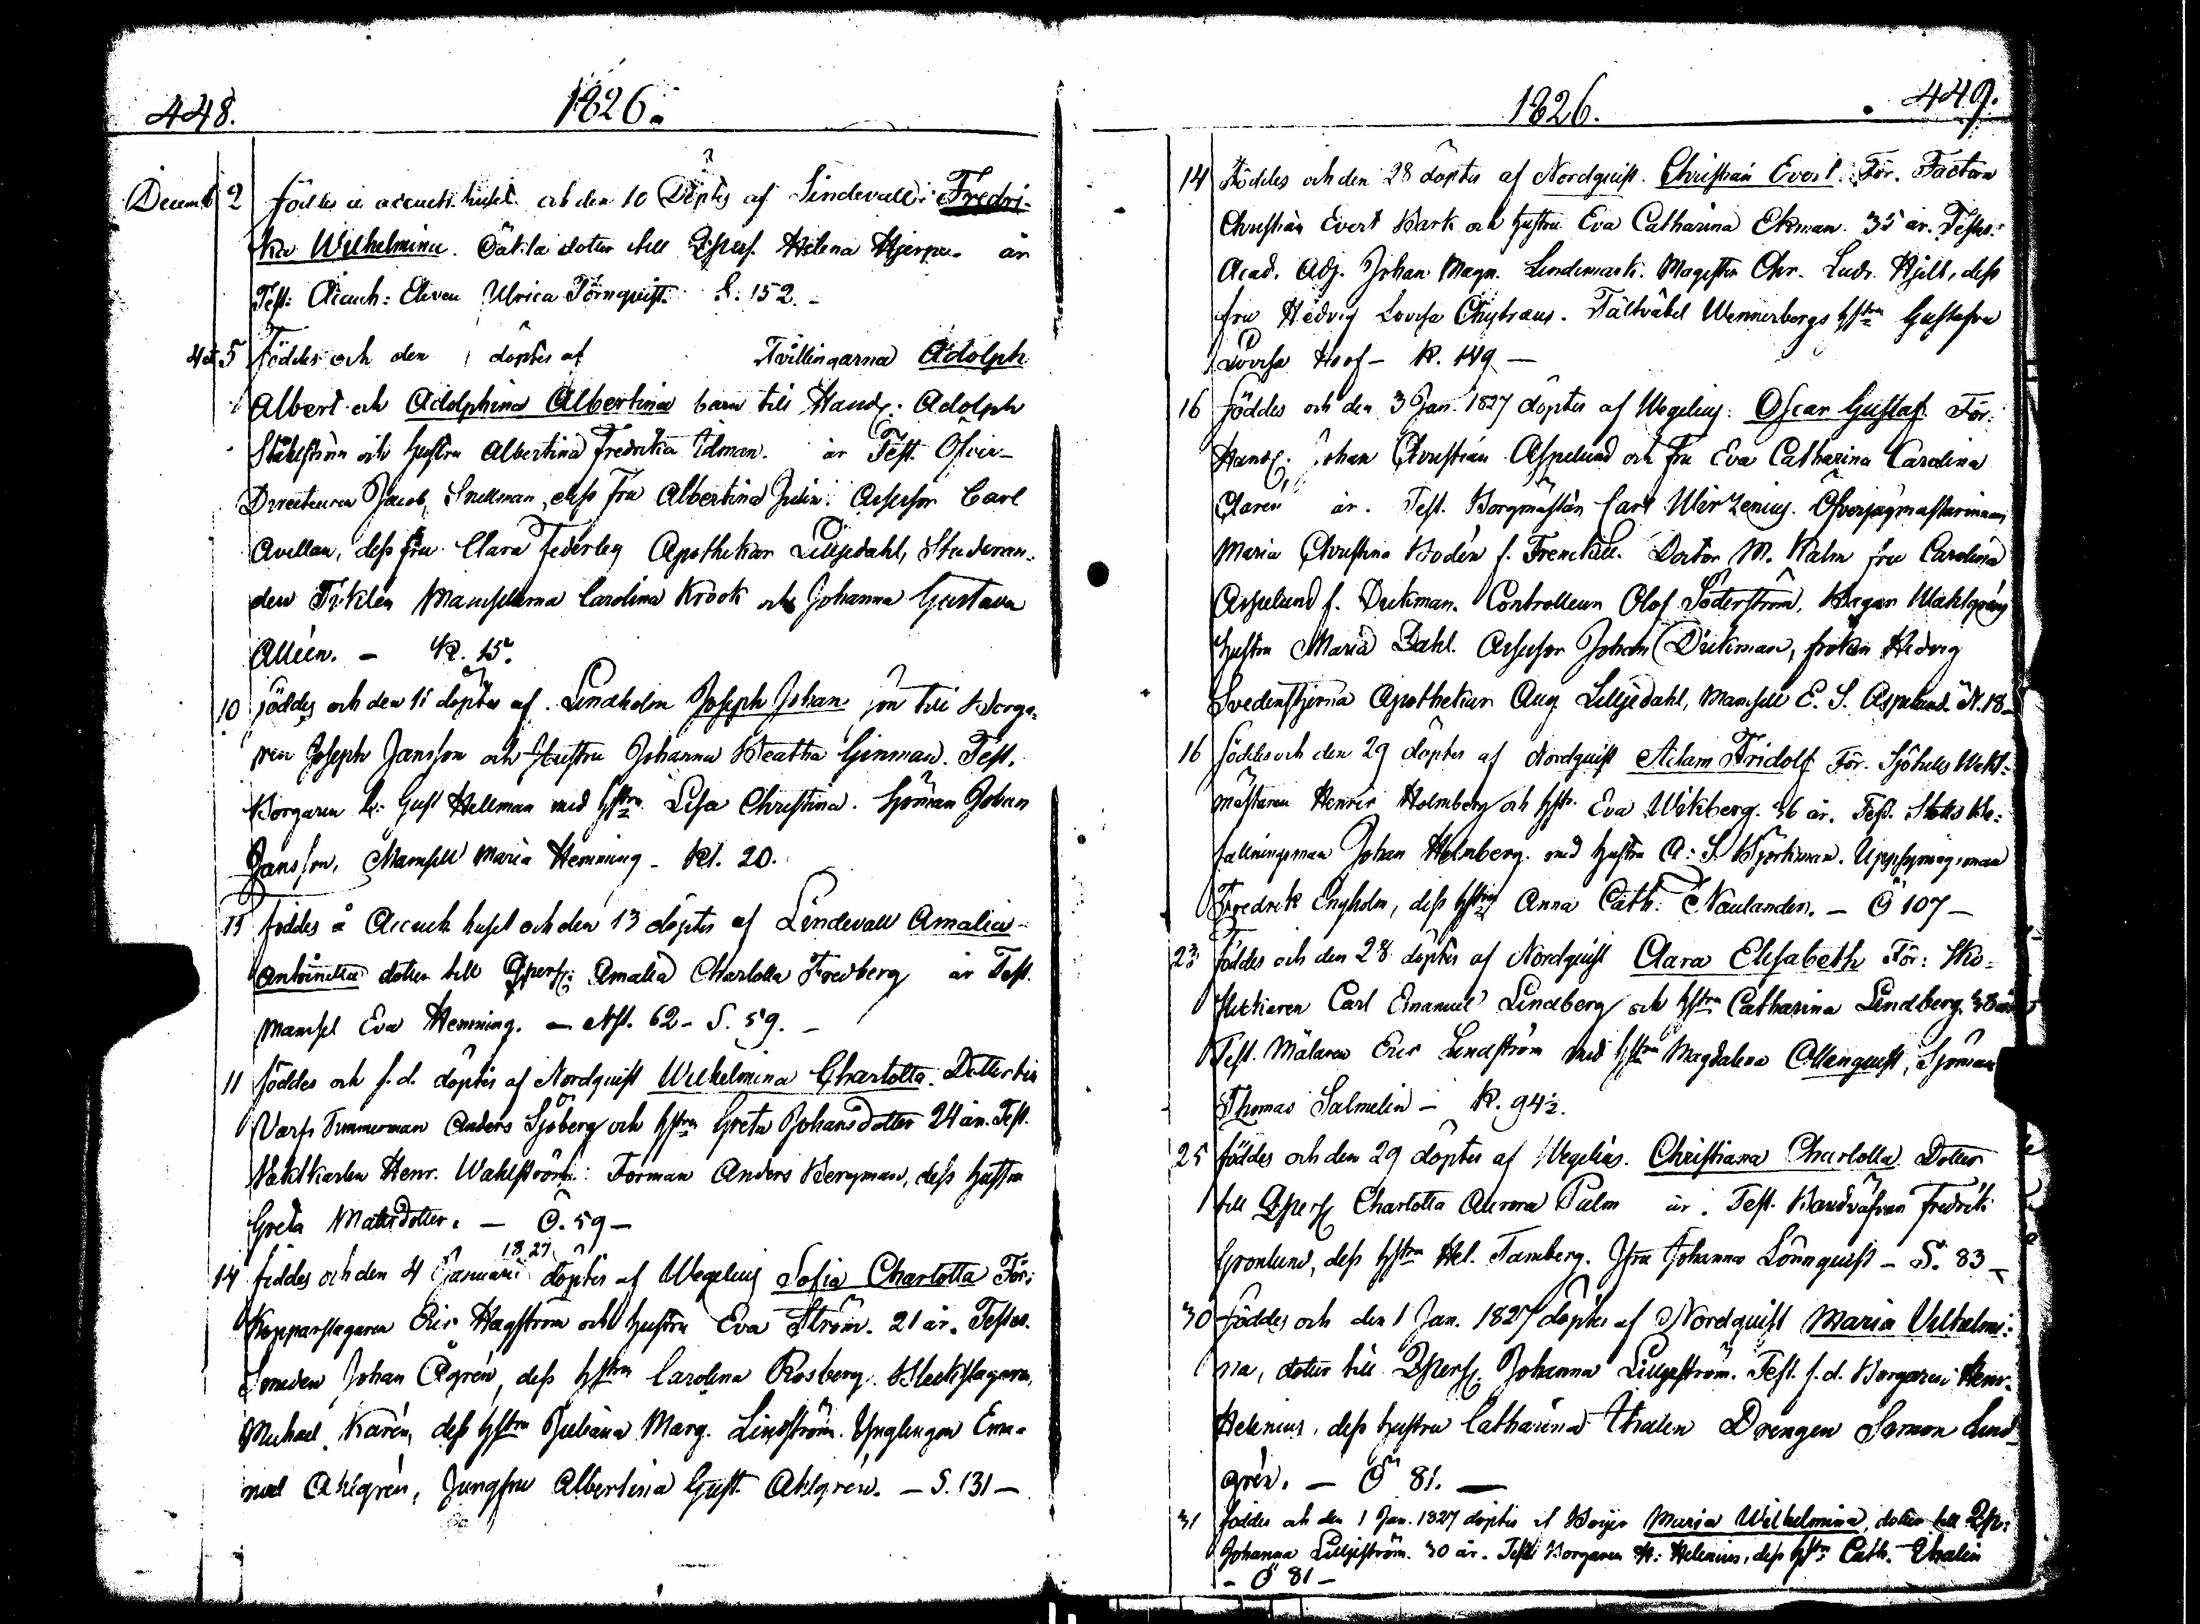 448. 1826.
Decemb 2 föddes i accuch. huset och den 10 Döptes af Lindevall: Fredri-
ka Wilhelmina. Oäkta doter till Qpers. Helena Hjerpe. år
Test: Accuch: Eleven Ulrica Törnquist. S: 152.
4 et 5 föddes och den döptes af Tvillingarna Adolph
Albert och Adolphina Albertina barn till Handl: Adolph
Ståhlström och hustru Albertina Fredrika Idman. år Test. Öfver-
Directeuren Jacob Snellman, dess Fru Albertina Julin. Assessor Carl
Avellan, dess fru Clara Federley Apothekar Liljedahl, Studeran-
den Mamsellerna Carolina Krook och Johanna Gustava
Alleen. – K. 15.
10 föddes och den 11 döptes af Lindholm Joseph Johan son till Borga-
ren Joseph Jansson och Hustru Johanna Beatha Ginman. Test.
Borgaren Gust Hellman med hstru Lisa Christina. Sjöman Johan
Jansson, Mamsell Maria Hemming – Kl. 20.
13 föddes å Accuch huset och den 13 döptes af Lindevall Amalia
Antoinetta dotter till Qpers: Amalia Charlotta Fredberg år Test.
Mamsel Eva Hemming. – No. 62 – S. 59. –
11 föddes och s. d. döptes af Nordquist Wilhelmina Charlotta. Dotter till
Varfs Timmerman Anders Sjöberg och hstru Greta Johansdotter 24 år. Test.
Vaktkarlen Henr. Wahlström: Forman Anders Bergman, dess hustru
Greta Matsdotter. – Ö. 59 –
14 föddes och den 4 Januarii 1827 döptes af Wegelius Sofia Charlotta För:
Kopparslagaren Eric Hagström och hustru Eva Ström. 21 år. Testes.
Smeden Johan Ågrén, dess hstru Carolina Rosberg. Bleckslagaren
Michael Karén, dess hstru Juliana Marg. Lindström. Ynglingen Ema-
nuel Ahlgrén, Jungfru Albertina Gust. Ahlgrén. – S. 131 –
1826. 449.
14 Föddes och den 28 döptes af Nordquist. Christian Evert. För. Factorn
Christian Evert Bark och hustru Eva Catharina Ekman. 35 år. Testes:
Acad. Adj. Johan Magn. Lindemark. Magister Chr. Ludv. Hjelt, dess
fru Hedvig Lovisa Chytraeus. Fältväbel Wennerbergs hstru Gustafva
Lovisa Hoof – K. 149 –
16 föddes och den 3 Jan. 1827 döptes af Wegelius: Oscar Gustaf För:
Handl. Johan Christian Aspelund och fru Eva Catharina Carolina
Claren år. Test. Borgmästan Carl Wirzenius. Öfverjägmästarinnan
Maria Christina Bodén f. Frenckell. Doctor M. Kalm fru Carolina
Aspelund f. Dickman. Controlleuren Olof Söderström, Bagar Wahlqvists
hustru Maria Dahl. Assessor Johan Dickman, fröken Hedvig
Svedenstjerna Apothekar Aug. Liljedahl, Mamsell E. S. Aspelund. N. 18 –
16 föddes och den 29 döptes af Nordquist Adam Fridolf För. Sjötulls Vakt-
mästaren Henric Holmberg och hstr. Eva Wikberg. 36 år. Test. Slotts Be-
fallningsman Johan Holmberg med hustru A: S. Björkman. Uppsyningsman
Fredrik Engholm, dess hstru Anna Cath. Naulander. – Ö 107 –
23 föddes och den 28 döptes af Nordquist Clara Elisabeth För: Sko-
flickaren Carl Emanuel Lindberg och hstru Catharina Lindberg. 38 år
Test. Målaren Eric Lindström med hstru Magdalena Ollenquist, Sjöman
Thomas Salmelin – K. 94½.
25 föddes och den 29 döptes af Wegelius. Christiana Charlotta Dotter
till Qpers Charlotta Aurora Palm år. Test. Bandväfvaren Fredrik
Grönlund, dess hstru Hel. Tamberg. Jfru Johanna Lönnquist – S. 83 –
30 föddes och den 1 Jan. 1827 döptes af Nordquist Maria Vilhelmi:
na, dotter till Qpers. Johanna Liljeström. Test. f. d. Borgaren Henr.
Helenius, dess hustru Catharina Thalén Drengen Simon Lind-
grén. – Ö 81. –
31 föddes och den 1 Jan. 1827 döptes af Boije Maria Wilhelmina, dotter till Qp:
Johanna Liljeström. 30 år. Test Borgaren H: Helenius, dess hstru Cath. Thalén
– Ö 81 –